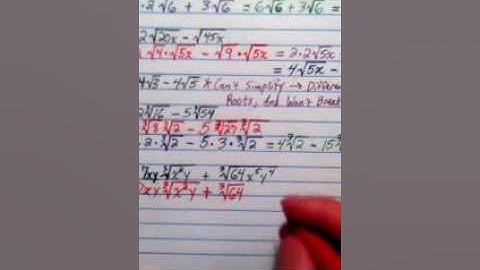 · 2√6 + 3√6 = 6√6 + 3√6 =
2√20x − √45x
√4 · √5x − √9 · √5x = 2·2√5x −
= 4√5x −
4√3 − 4√5 * Can't Simplify → Differe
Roots, And Won't Break
2∛16 − 5∛54
∛8 ∛2 − 5 ∛27 ∛2
·2·∛2 − 5·3·∛2 = 4∛2 − 15∛
7xy∛x²y + ∛64x⁵y⁴
7xy∛x²y + ∛64